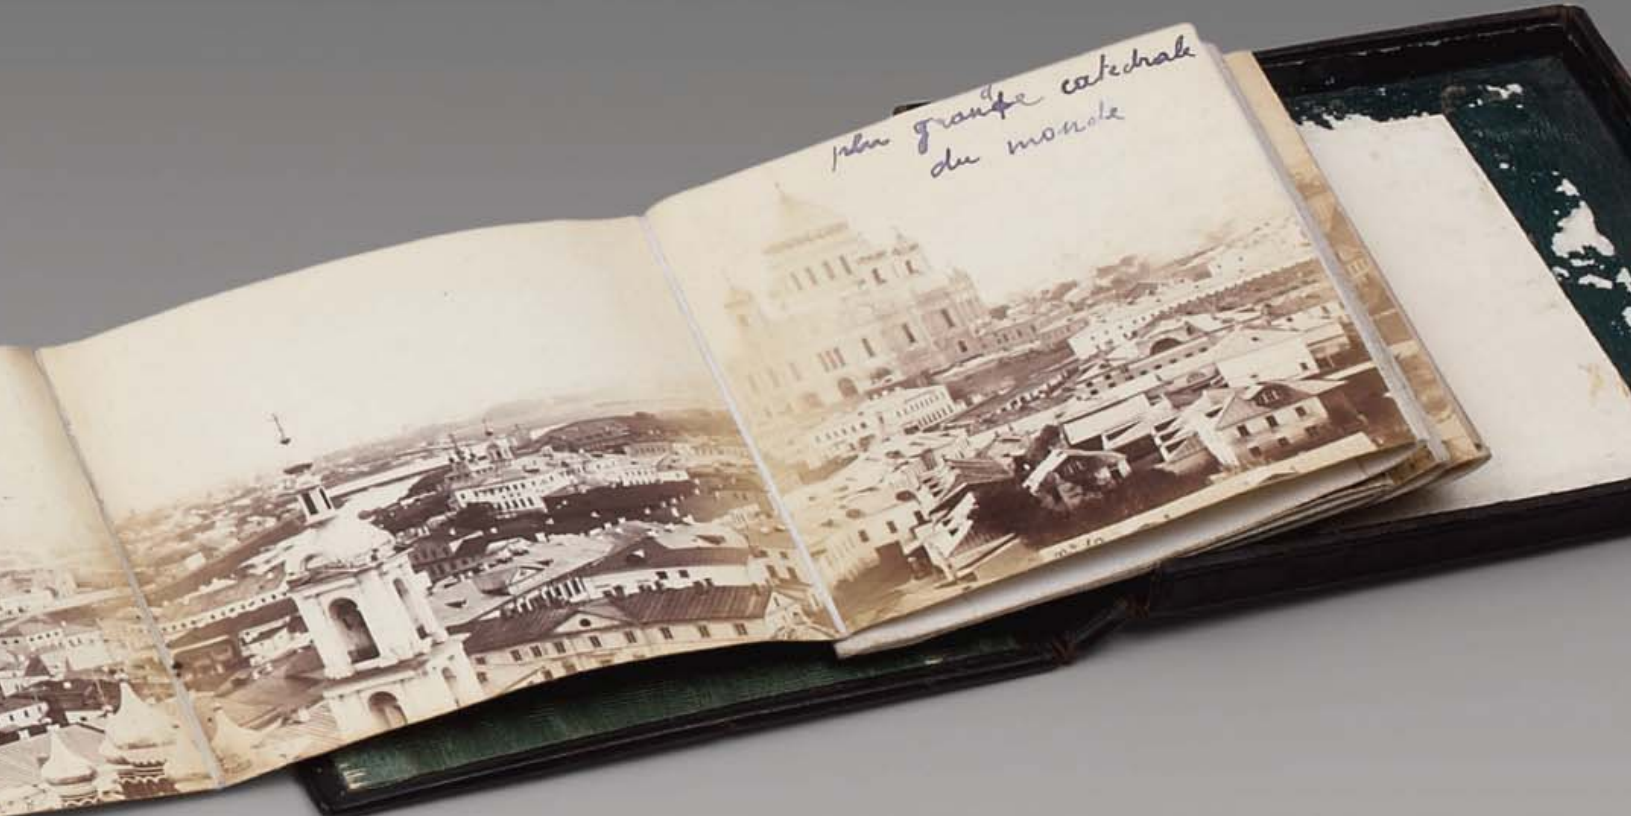 plu grande catedrale
du monde